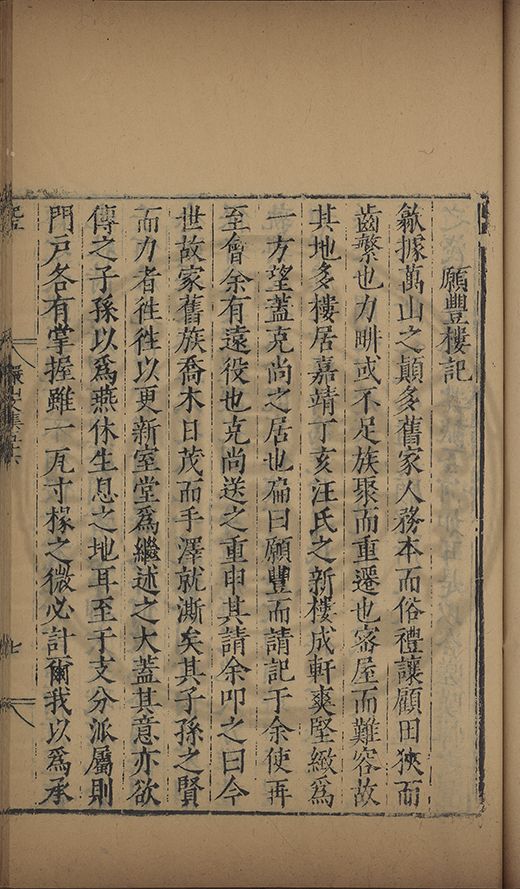 願豐樓記
歙據萬山之巔多舊家人務本而俗禮讓顧田狹而
齒繁也力畊或不足族聚而重遷也密屋而難容故
其地多樓居嘉靖丁亥汪氏之新樓成軒爽堅緻爲
一方望蓋克尚之居也扁曰願豐而請記于余使再
至會余有遠役也克尚送之重申其請余叩之曰今
世故家舊族喬木日茂而手澤就澌矣其子孫之賢
而力者徃徃以更新室堂爲繼述之大蓋其意亦欲
傳之子孫以爲燕休生息之地耳至于支分派屬則
門戶各有掌握雖一瓦寸椽之微必計爾我以爲承